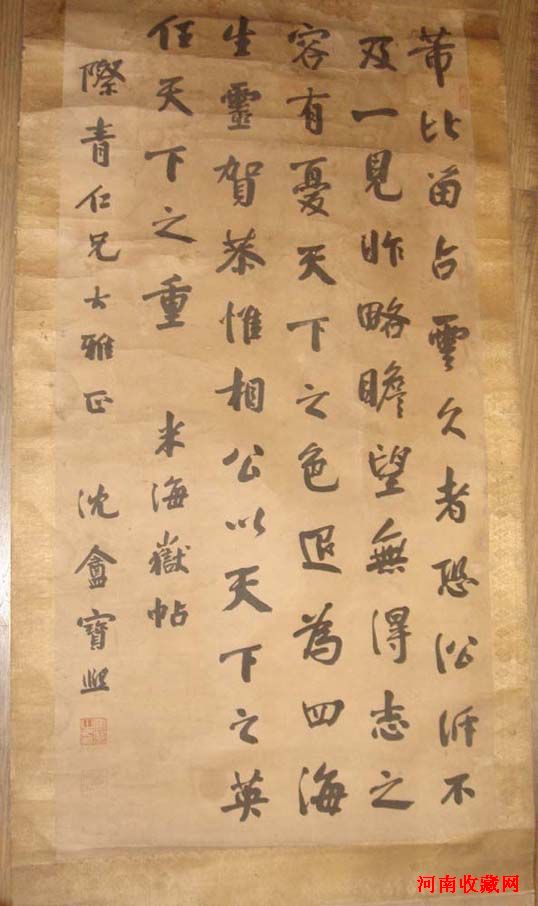 芾比留占雲久者恐訟訴不
及一見昨略瞻望無得志之
容有憂天下之色退為四海
生靈賀恭惟相公以天下之英
任天下之重 米海嶽帖
際青仁兄大雅正 沈盦寶熙
河南收藏网